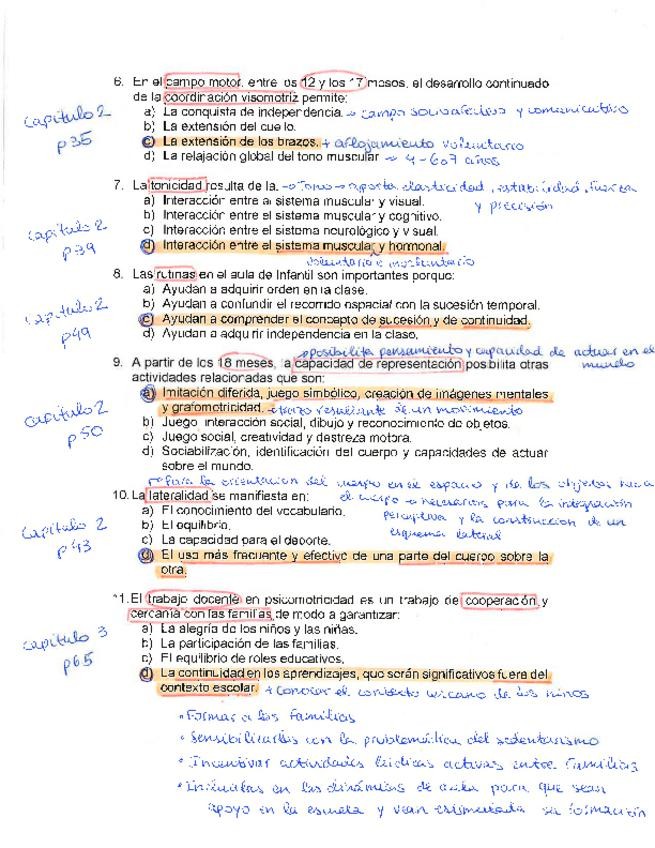 6. En el campo motor, entre los 12 y los 17 meses, el desarrollo continuado
de la coordinación visomotriz permite:
Capítulo 2
p35
a) La conquista de independencia. → campo socioafectivo y comunicativo
b) La extensión del cuello.
c) La extensión de los brazos. + aflojamiento voluntario
d) La relajación global del tono muscular → 4-6 o 7 años
7. La tonicidad resulta de la. → Tono → aporta elasticidad, estabilidad, fuerza
y precisión
a) Interacción entre el sistema muscular y visual.
b) Interacción entre el sistema muscular y cognitivo.
c) Interacción entre el sistema neurológico y visual.
d) Interacción entre el sistema muscular y hormonal.
voluntario e involuntario
Capítulo 2
p39
8. Las rutinas en el aula de Infantil son importantes porque:
a) Ayudan a adquirir orden en la clase.
b) Ayudan a confundir el recorrido espacial con la sucesión temporal.
c) Ayudan a comprender el concepto de sucesión y de continuidad.
d) Ayudan a adquirir independencia en la clase.
Capítulo 2
p49
→ posibilita pensamiento y capacidad de actuar en el
mundo
9. A partir de los 18 meses, la capacidad de representación posibilita otras
actividades relacionadas que son:
a) Imitación diferida, juego simbólico, creación de imágenes mentales
y grafomotricidad. → trazo resultante de un movimiento
b) Juego interacción social, dibujo y reconocimiento de objetos.
c) Juego social, creatividad y destreza motora.
d) Sociabilización, identificación del cuerpo y capacidades de actuar
sobre el mundo.
Capítulo 2
p50
→ Para la orientación del cuerpo en el espacio y de los objetos hacia
10. La lateralidad se manifiesta en: el cuerpo → necesarios para la integración
a) El conocimiento del vocabulario. perceptiva y la construcción de un
b) El equilibrio. esquema lateral
c) La capacidad para el deporte.
d) El uso más frecuente y efectivo de una parte del cuerpo sobre la
otra.
Capítulo 2
p43
11. El trabajo docente en psicomotricidad es un trabajo de cooperación y
cercanía con las familias de modo a garantizar:
a) La alegría de los niños y las niñas.
b) La participación de las familias.
c) El equilibrio de roles educativos.
d) La continuidad en los aprendizajes, que serán significativos fuera del
contexto escolar. + Conocer el contexto cercano de los niños
Capítulo 3
p65
• Formar a las familias
• Sensibilizarlas con la problemática del sedentarismo
• Incentivar actividades lúdicas activas entre familias
• Incluirlas en las dinámicas de aula para que sean
apoyo en la escuela y vean estimulada su formación